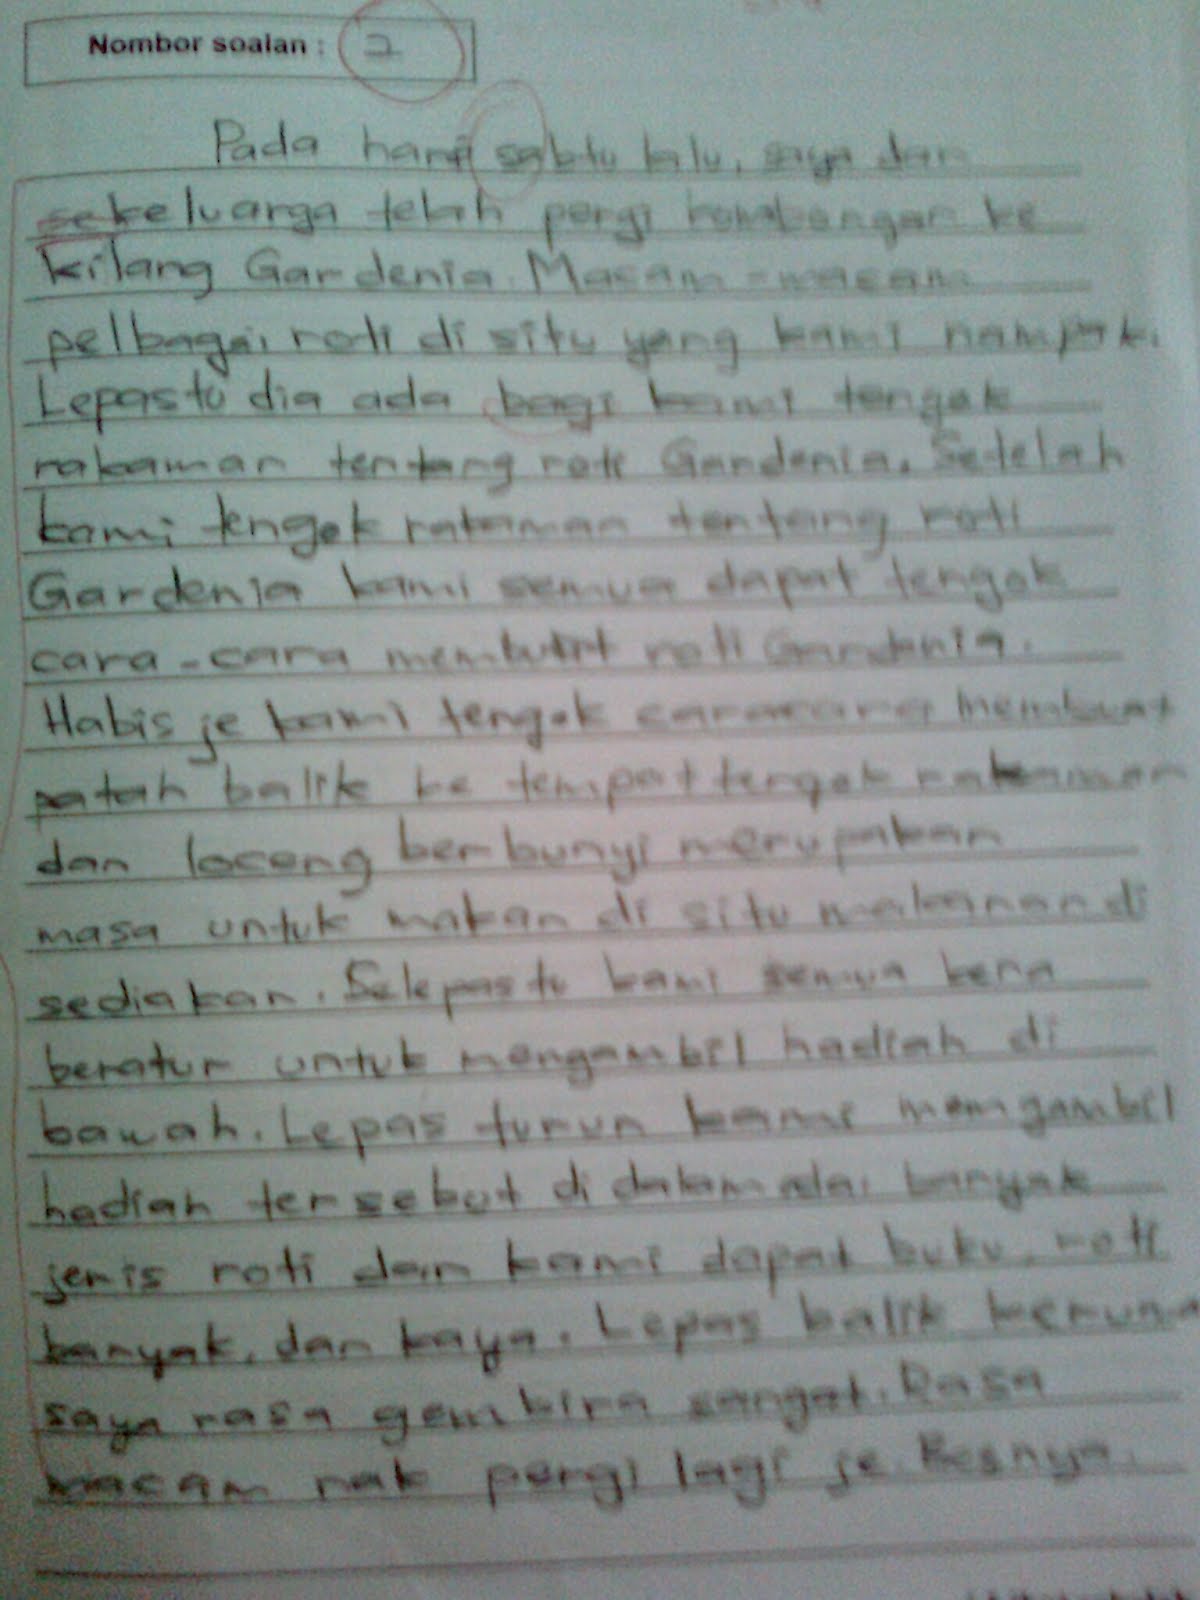 Nombor soalan : 2
Pada hari sabtu lalu, saya dan
sekeluarga telah pergi rombongan ke
kilang Gardenia. Macam-macam
pelbagai roti di situ yang kami nampak.
Lepastu dia ada bagi kami tengok
rakaman tentang roti Gardenia. Setelah
kami tengok rakaman tentang roti
Gardenia kami semua dapat tengok
cara-cara membuat roti Gardenia.
Habis je kami tengok caracara membuat
patah balik ke tempat tengok rakaman
dan loceng berbunyi merupakan
masa untuk makan di situ makanan di
sediakan. Selepastu kami semua kena
beratur untuk mengambil hadiah di
bawah. Lepas turun kami mengambil
hadiah tersebut di dalam adai banyak
jenis roti dan kami dapat buku, roti
banyak, dan kaya. Lepas balik
saya rasa gembira sangat. Rasa
macam nak pergi lagi je. Besnya.